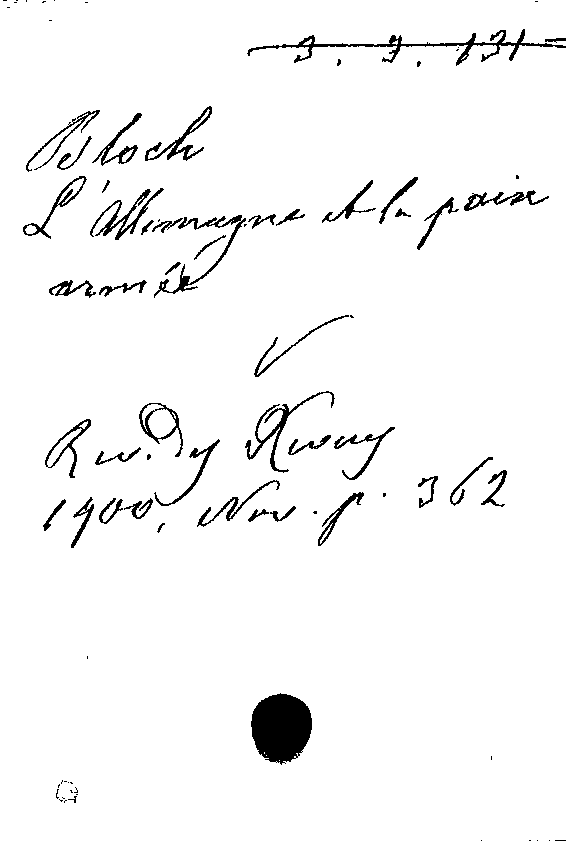 3. 3. 131
Bloch
L'Allemagne et la paix
armée
Rev. des Revues
1900, Nov. p. 362